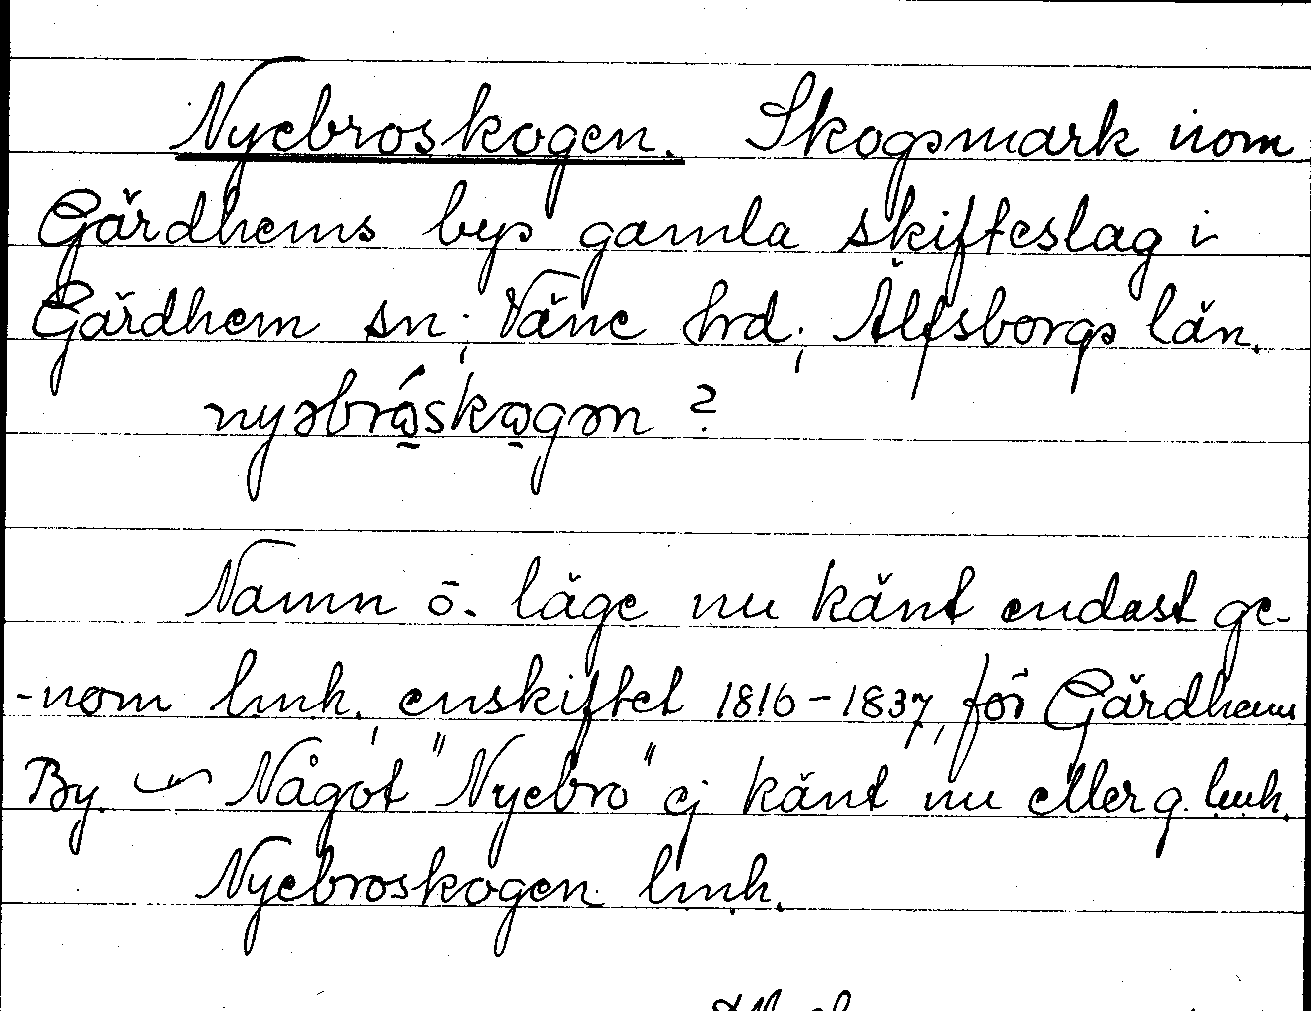 Nyebroskogen. Skogsmark inom
Gärdhems bys gamla skifteslag i
Gärdhem sn; Väne hrd; Älfsborgs län.
nyəbrώ̱skω̱gən ?
Namn o. läge nu känt endast ge-
-nom lmh., enskiftet 1816-1837, för Gärdhems
By. — Något "Nyebro" ej känt nu eller g. lmh.
Nyebroskogen lmh.